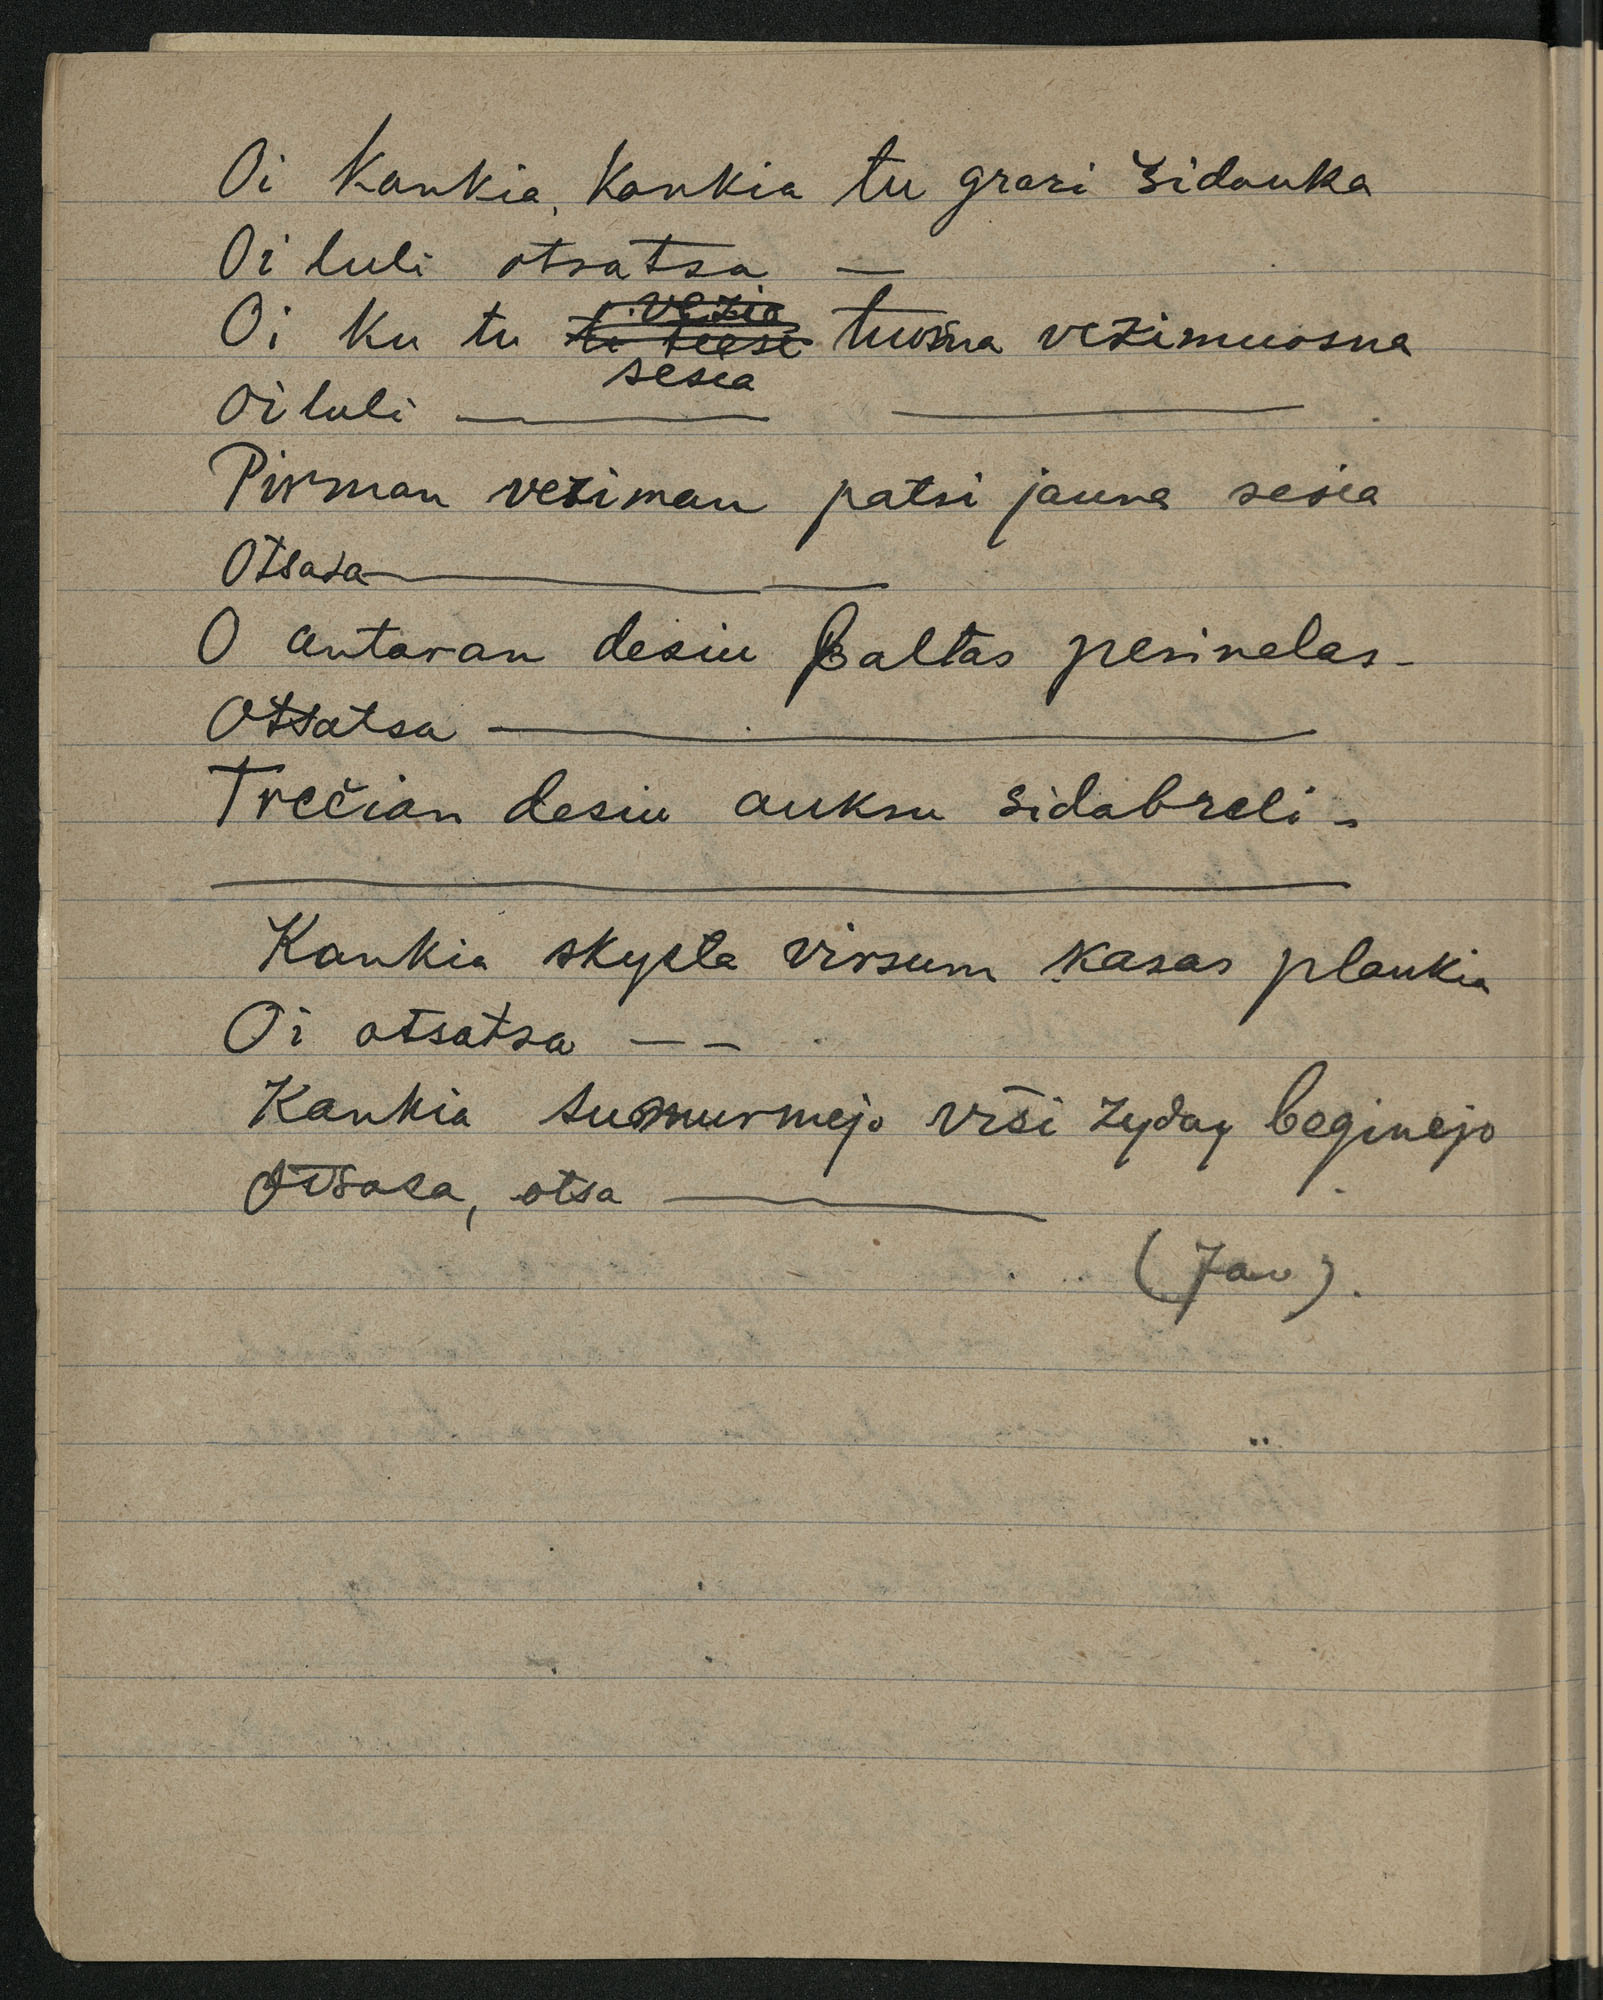 Oi Kankia, Kankia tu grazi Zidauka
Oi luli otsatsa —
Oi ku tu sesia tuosna vezimuosna
Oi luli — —
Pirman veziman patsi jauna sesia
Otsasa — —
O antaran desiu Baltas perinelas -
Otsatsa —
Trečian desiu auksu sidabreli -
Kankia skysta virsum kasas plaukia
Oi otsatsa — —
Kankia sumurmejo visi zyday beginejo
Otsasa, otsa —
(Jau).